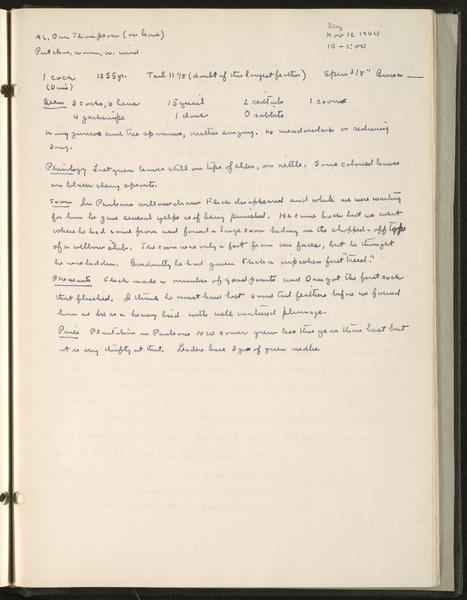 Riley
AL, Dan Thompson (on leave) Nov 12 1944
Part clear, warm, W. wind 10 - 1:00
1 cock 1355 gr. Tail 11 7/8 (doubt if the longest feather) Spur 3/8" Bursa —
(Dan's)
Seen 3 cocks, 6 hens 15 quail 2 redtails 1 coon
4 jacksnipe 1 dove 0 rabbits
Many juncos and tree sparrows, neither singing. No meadowlark or redwing
song.
Phenology Last green leaves still on tips of elder, on nettle. Some colored leaves
on black cherry sprouts.
Coon In Parsons willows draw Flick disappeared and while we were waiting
for him he gave several yelps as if being punished. He came back but we went
where he had come from and found a large coon hiding in the chopped-off top
of a willow stub. The coon was only a foot from our faces, but he thought
he was hidden. Evidently he had given Flick a nip when first "treed."
Pheasants Flick made a number of good points and Dan got the first cock
that flushed. I think he must have lost some tail feathers before we found
him as he is a heavy bird with well matured plumage.
Pines Plantation in Parsons NW corner grew less this year than last but
it is very thrifty at that. Leaders have 3 yrs of green needles.